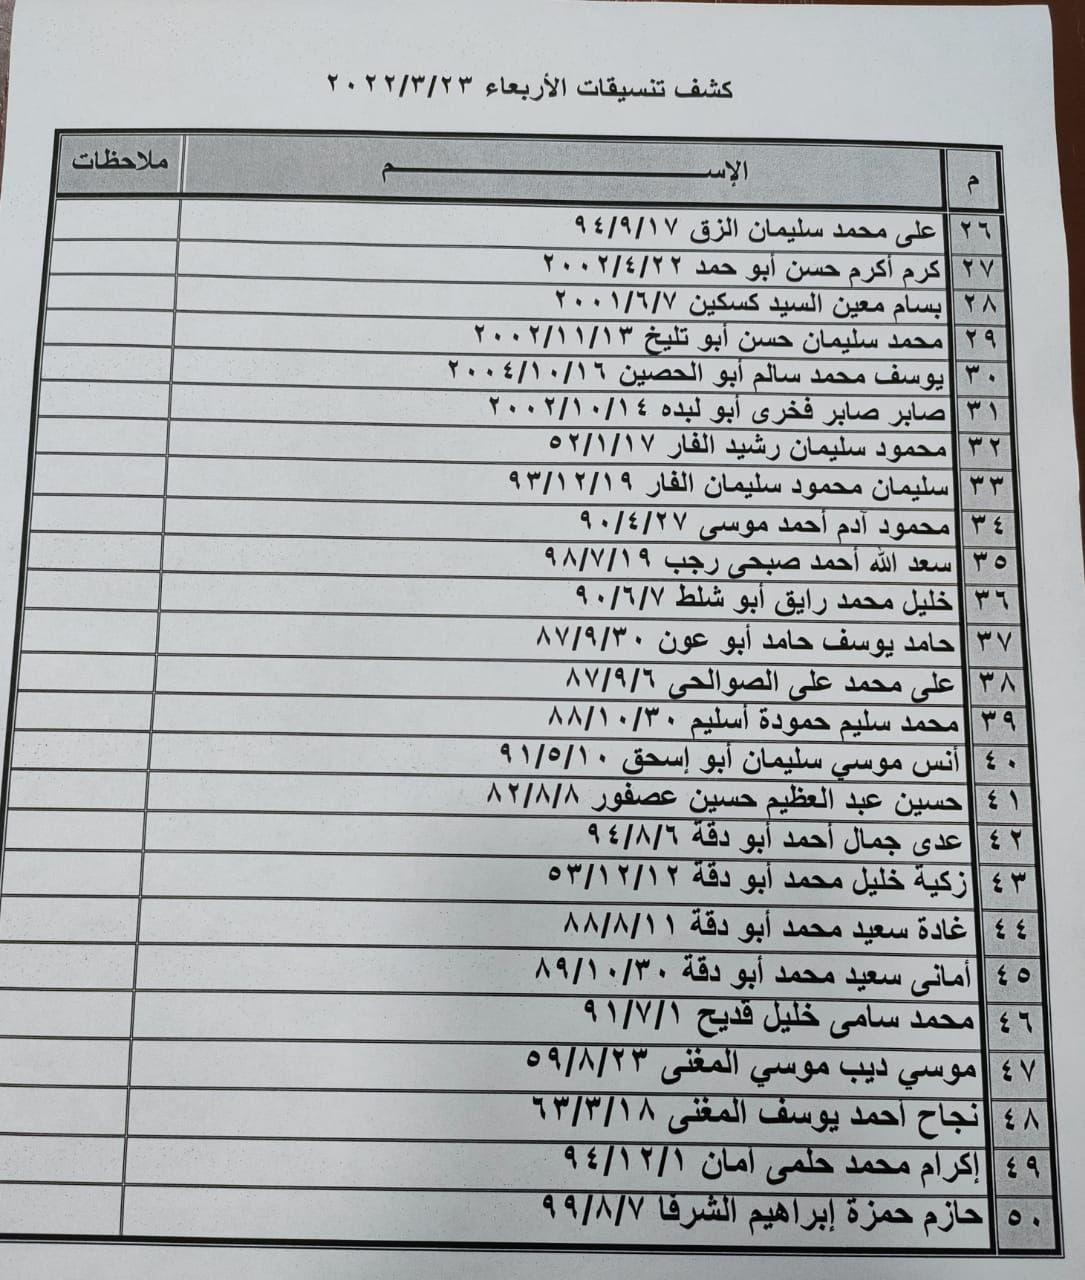 كشف تنسيقات الأربعاء ٢٠٢٢/٣/٢٣
م الإســـم ملاحظات
٢٦ على محمد سليمان الزق ٩٤/٩/١٧
٢٧ كرم أكرم حسن أبو حمد ٢٠٠٢/٤/٢٢
٢٨ بسام معين السيد كسكين ٢٠٠١/٦/٧
٢٩ محمد سليمان حسن أبو تليخ ٢٠٠٢/١١/١٣
٣٠ يوسف محمد سالم أبو الحصين ٢٠٠٤/١٠/١٦
٣١ صابر صابر فخرى أبو لبده ٢٠٠٢/١٠/١٤
٣٢ محمود سليمان رشيد الفار ٥٢/١/١٧
٣٣ سليمان محمود سليمان الفار ٩٣/١٢/١٩
٣٤ محمود آدم أحمد موسى ٩٠/٤/٢٧
٣٥ سعد الله أحمد صبحى رجب ٩٨/٧/١٩
٣٦ خليل محمد رايق أبو شلط ٩٠/٦/٧
٣٧ حامد يوسف حامد أبو عون ٨٧/٩/٣٠
٣٨ على محمد على الصوالحى ٨٧/٩/٦
٣٩ محمد سليم حمودة أسليم ٨٨/١٠/٣٠
٤٠ أنس موسي سليمان أبو إسحق ٩١/٥/١٠
٤١ حسين عبد العظيم حسين عصفور ٨٢/٨/٨
٤٢ عدى جمال أحمد أبو دقة ٩٤/٨/٦
٤٣ زكية خليل محمد أبو دقة ٥٣/١٢/١٢
٤٤ غادة سعيد محمد أبو دقة ٨٨/٨/١١
٤٥ أمانى سعيد محمد أبو دقة ٨٩/١٠/٣٠
٤٦ محمد سامى خليل قديح ٩١/٧/١
٤٧ موسي ديب موسي المغنى ٥٩/٨/٢٣
٤٨ نجاح أحمد يوسف المغنى ٦٣/٣/١٨
٤٩ إكرام محمد حلمى أمان ٩٤/١٢/١
٥٠ حازم حمزة إبراهيم الشرفا ٩٩/٨/٧